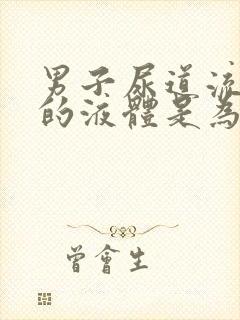 男子尿道流
的液體是為
曾會生